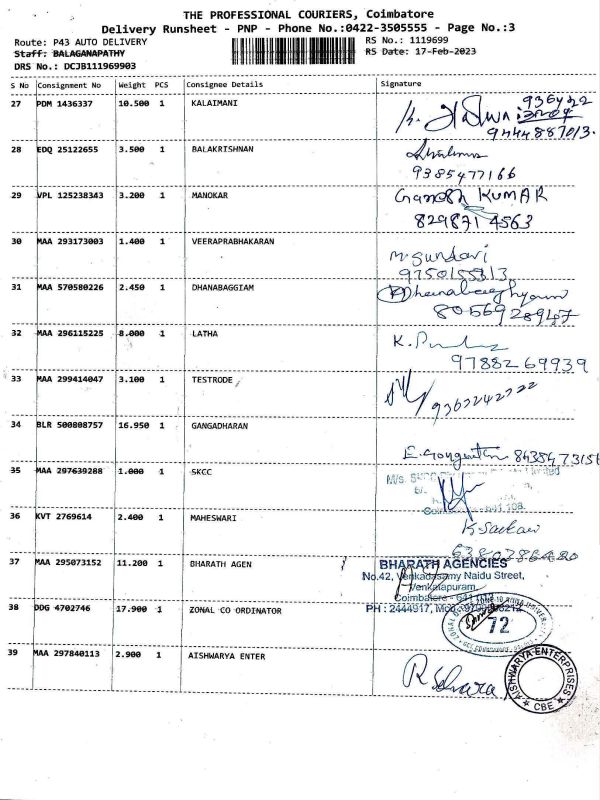 THE PROFESSIONAL COURIERS, Coimbatore
Delivery Runsheet - PNP - Phone No.:0422-3505555 - Page No.:3
Route: P43 AUTO DELIVERY RS No.: 1119699
Staff: BALAGANAPATHY RS Date: 17-Feb-2023
DRS No.: DCJB111969903
S No Consignment No Weight PCS Consignee Details Signature
27 PDM 1436337 10.500 1 KALAIMANI
9444887013.
28 EDQ 25122655 3.500 1 BALAKRISHNAN
9385477166
29 VPL 125238343 3.200 1 MANOKAR Ganesh KUMAR
8298714563
30 MAA 293173003 1.400 1 VEERAPRABHAKARAN
M. Sundari
9750155313
31 MAA 570580226 2.450 1 DHANABAGGIAM
8056928947
32 MAA 296115225 8.000 1 LATHA
9788269939
33 MAA 299414047 3.100 1 TESTRODE
34 BLR 500808757 16.950 1 GANGADHARAN
35 MAA 297639288 1.000 1 SKCC
M/s.
36 KVT 2769614 2.400 1 MAHESWARI
6380386480
37 MAA 295073152 11.200 1 BHARATH AGEN
BHARATH AGENCIES
No.42, Venkadasamy Naidu Street,
Venkatapuram,
Coimbatore
PH : 2444917, Mob
38 DDG 4702746 17.900 1 ZONAL CO ORDINATOR
72
39 MAA 297840113 2.900 1 AISHWARYA ENTER
AISHWARYA ENTERPRISES
CBE